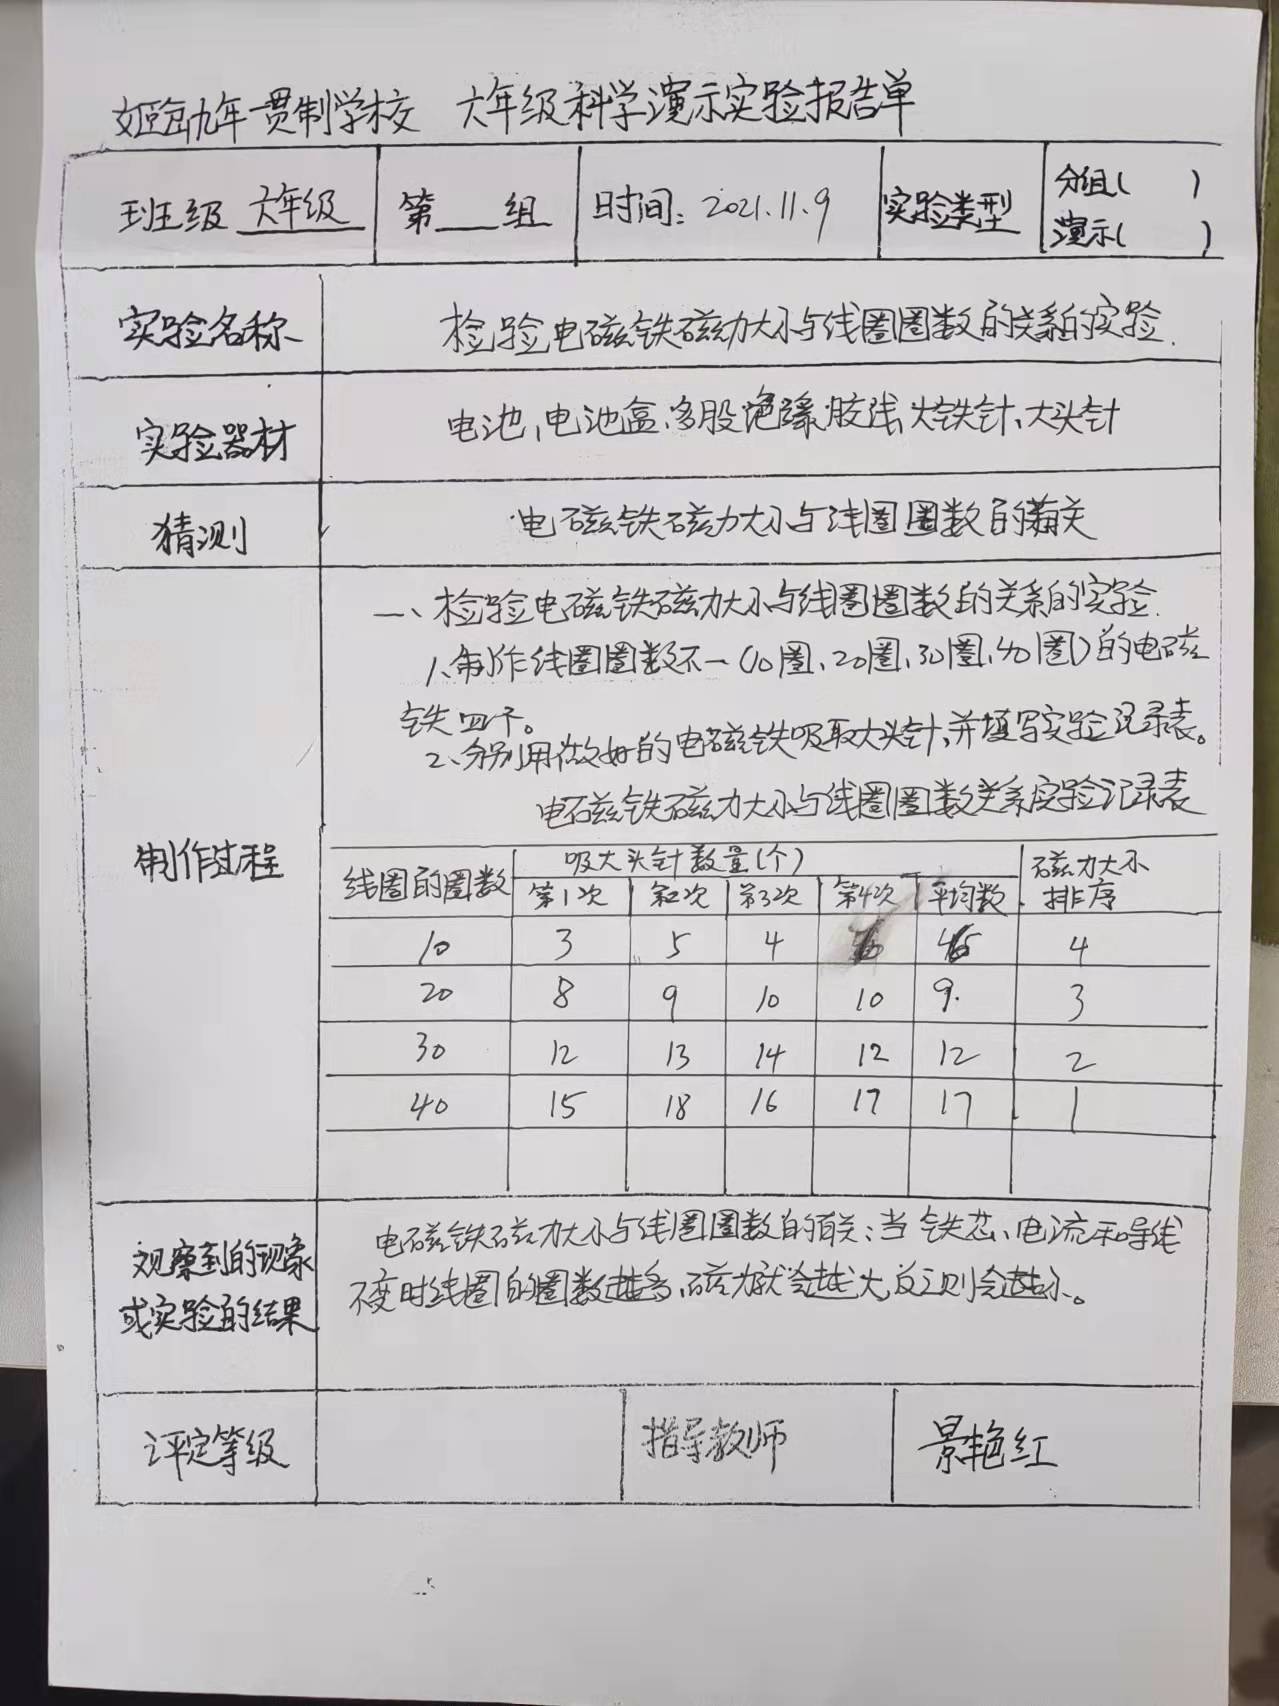 姬鱼九年一贯制学校 六年级科学演示实验报告单
班级 六年级 第___组 时间：2021.11.9 实验类型 分组（ ）
演示（ ）
实验名称 检验电磁铁磁力大小与线圈圈数的关系的实验.
实验器材 电池、电池盒、多股绝缘胶线、大铁针、大头针
猜测 电磁铁磁力大小与线圈圈数的有关
制作过程
一、检验电磁铁磁力大小与线圈圈数的关系的实验.
1、制作线圈圈数不一（10圈、20圈、30圈、40圈）的电磁
铁四个。
2、分别用做好的电磁铁吸取大头针，并填写实验记录表。
电磁铁磁力大小与线圈圈数关系实验记录表
线圈的圈数 吸大头针数量（个） 磁力大小
排序
第1次 第2次 第3次 第4次 平均数
10 3 5 4 4
20 8 9 10 10 9. 3
30 12 13 14 12 12 2
40 15 18 16 17 17 1
观察到的现象
或实验的结果
电磁铁磁力大小与线圈圈数的有关：当铁芯、电流和导线
不变时线圈的圈数越多，磁力就会越大，反之则会越小。
评定等级 指导教师 景艳红